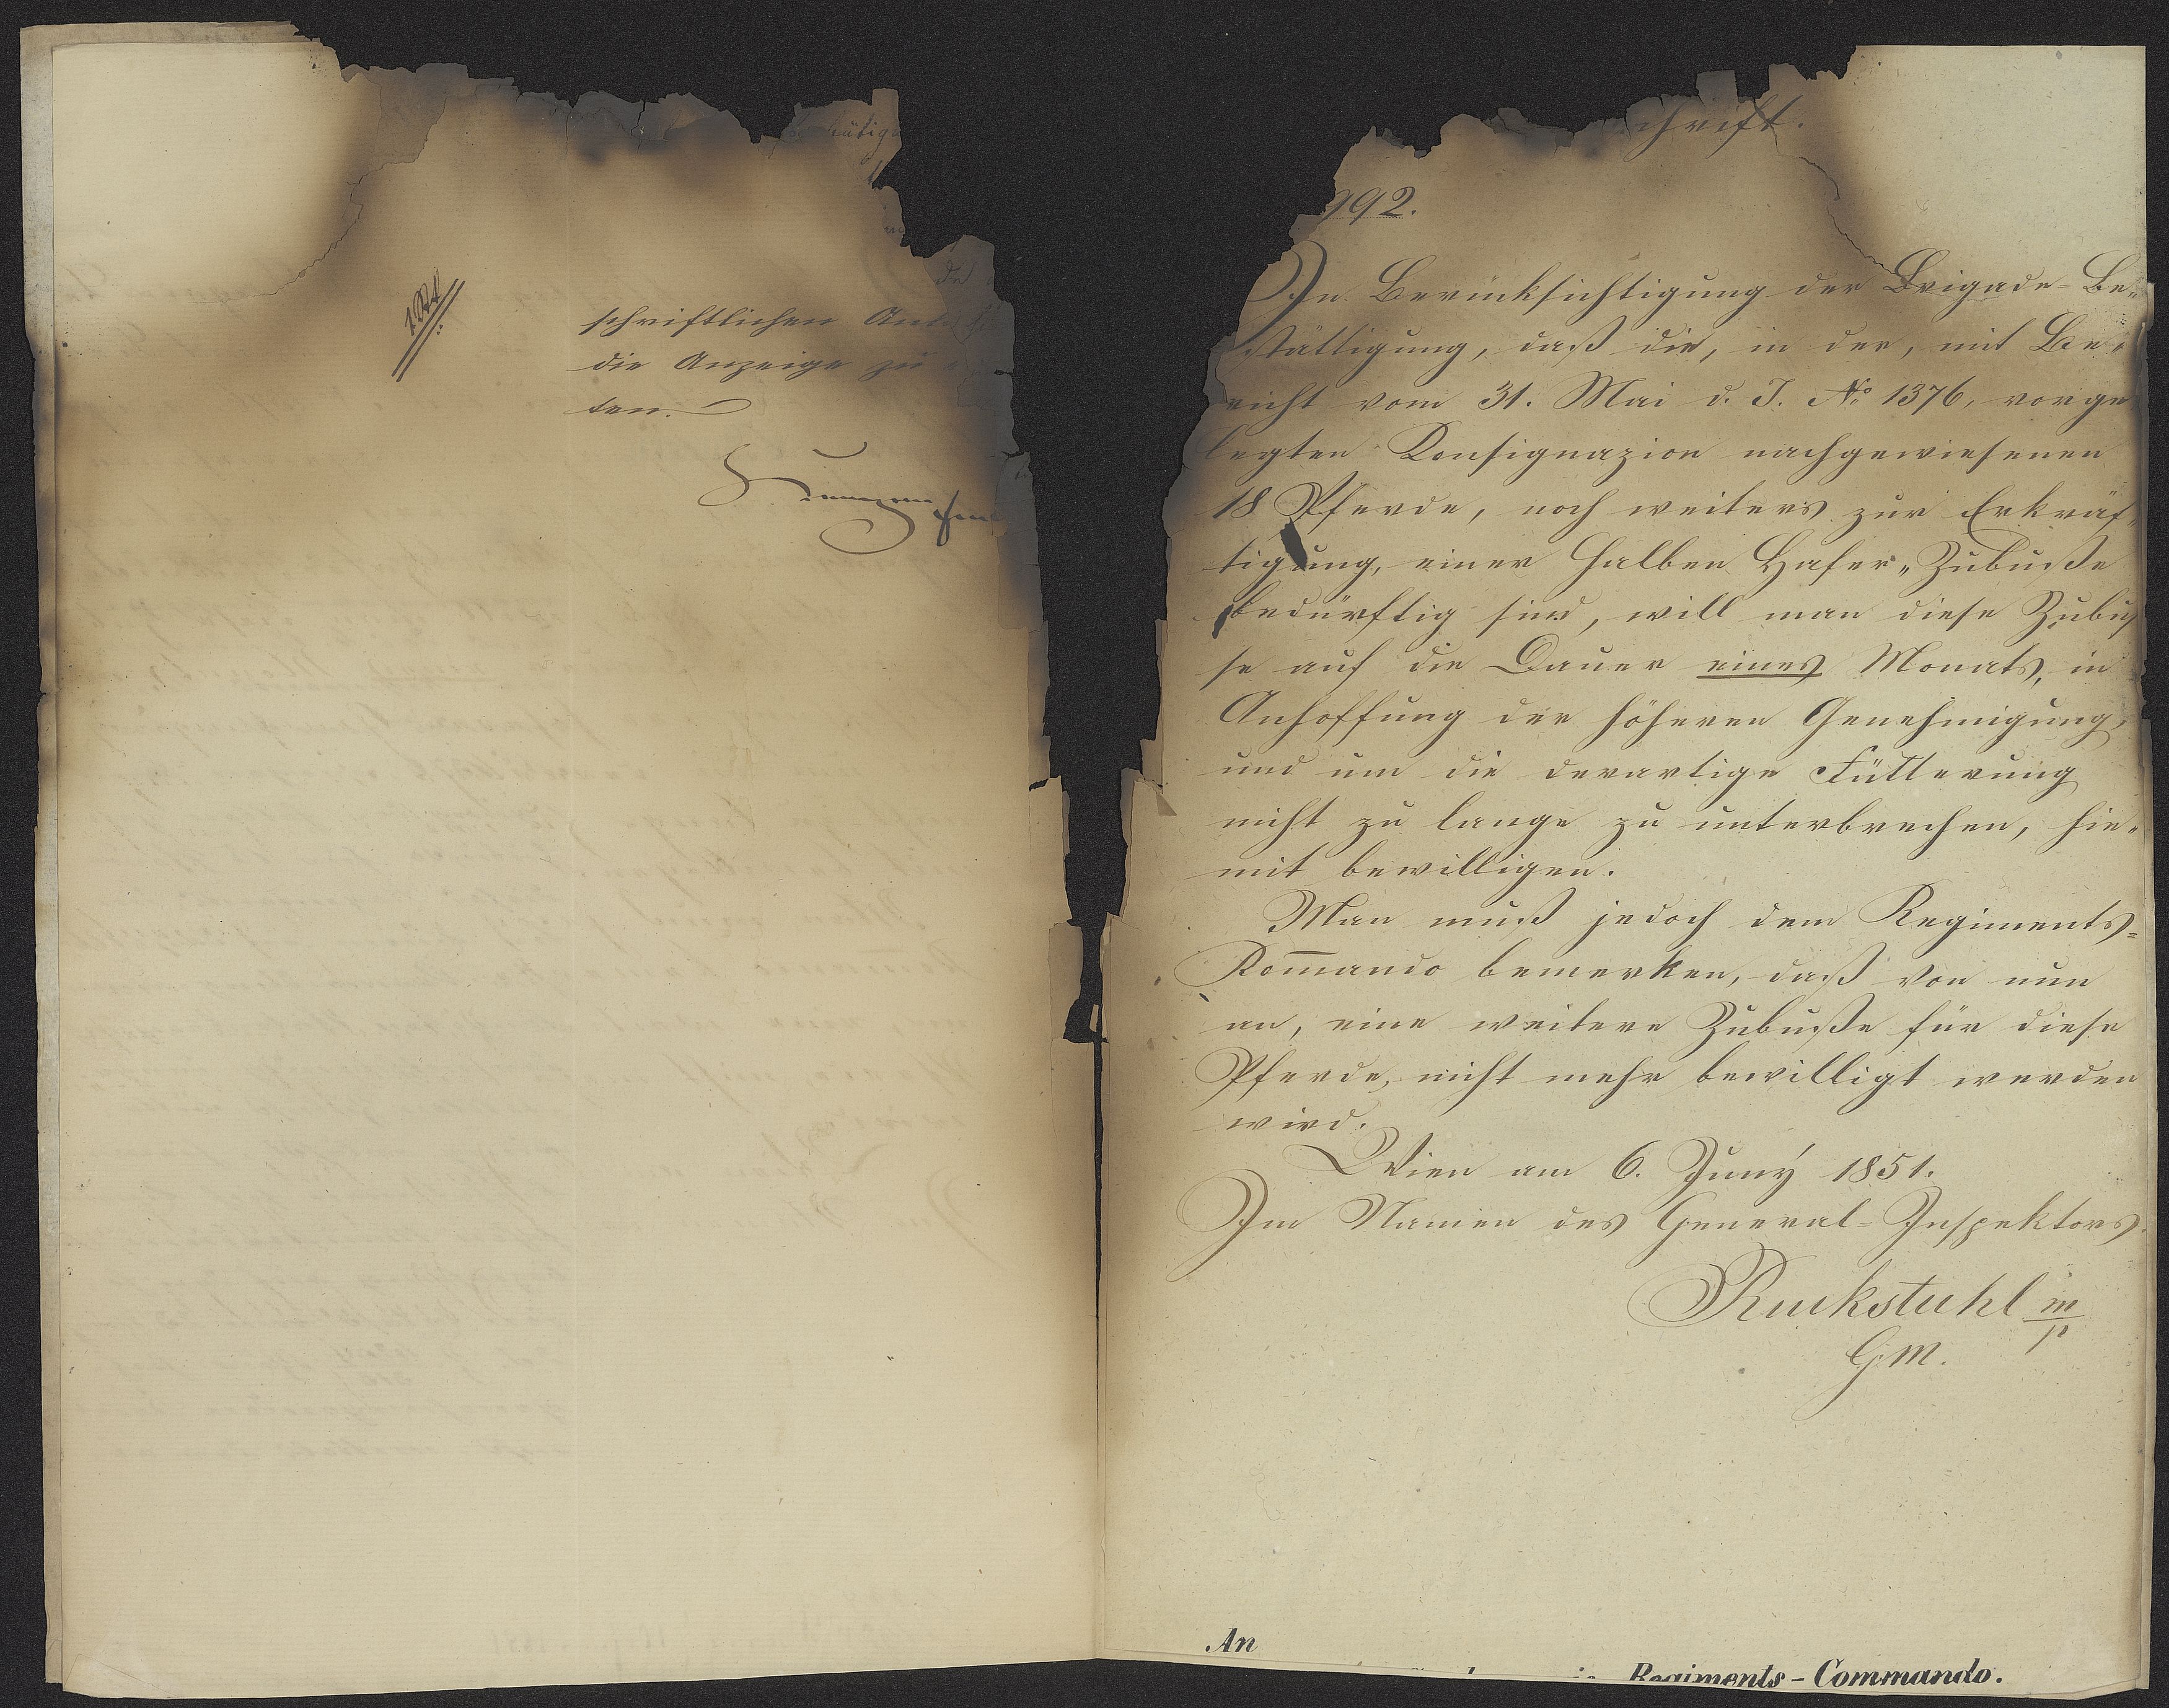 schriftlichen
die Anzeige zu
ten.
chrift.
992.
In Berücksichtigung der Brigade-Be„
stättigung, daß die, in der, mit Be„
richt vom 31. Mai d. J. No 1376, vorge
legten Konsignazion nachgewiesenen
18 Pferde, noch weiters zur Erkräf„
tigung, einer halben Hafer„Zubuße
bedürftig sind, will man diese Zubuß
se auf die Dauer eines Monats, in
Anhoffung der höheren Genehmigung,
und um die derartige Fütterung
nicht zu lange zu unterbrechen, hie„
mit bewilligen.
Man muß jedoch dem Regiments=
Kom̄ando bemerken, daß von nun
an, eine weitere Zubuße für diese
Pferde, nicht mehr bewilligt werden
wird.
Wien am 6. Juny 1851.
Im Namen des General=Inspektors.
Ruckstuhl m/p
GM.
An
Regiments-Commando.